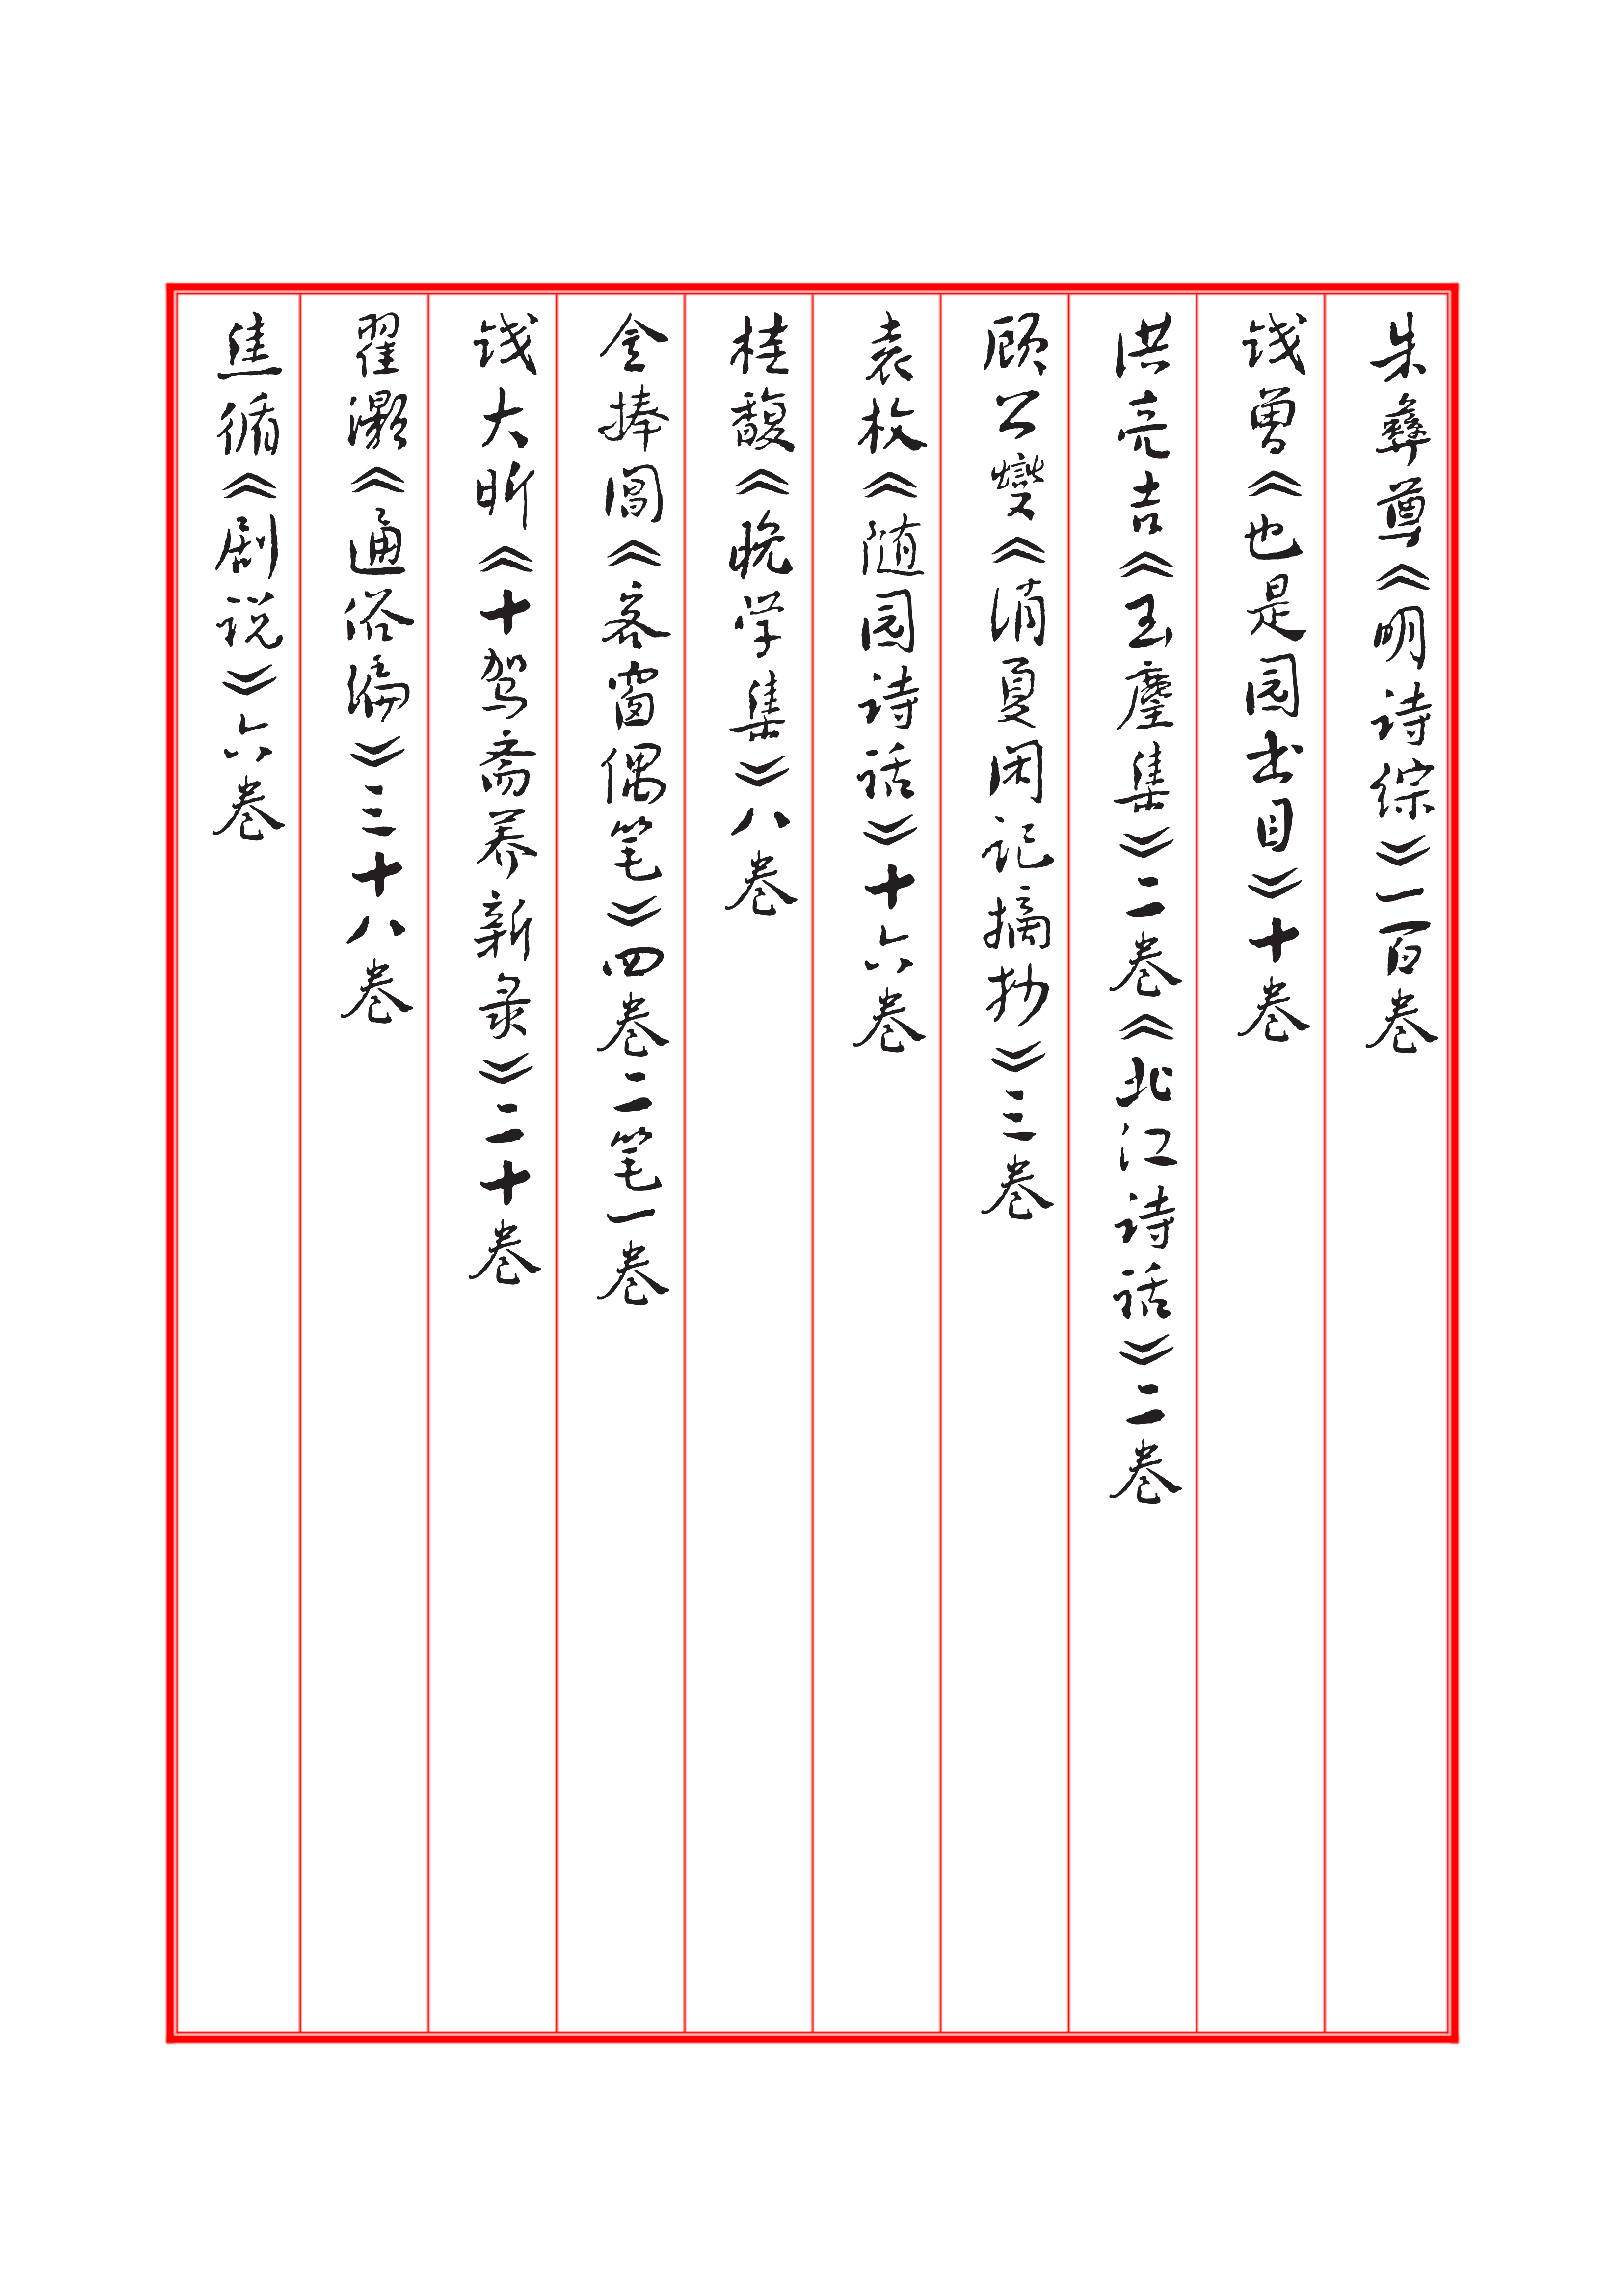 朱彝尊《明诗综》一百卷
钱曾《也是园书目》十卷
洪亮吉《玉麈集》二卷《北江诗话》二卷
顾公燮《消夏闲记摘抄》三卷
袁枚《随园诗话》十六卷
桂馥《晚学集》八卷
金捧阊《客窗偶笔》四卷二笔一卷
钱大昕《十驾斋养新录》二十卷
翟灏《通俗编》三十八卷
焦循《剧说》六卷